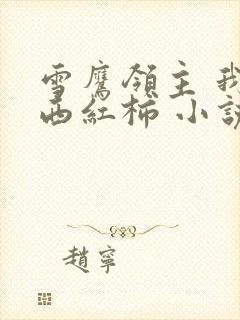 雪鷹領主 我
西紅柿 小說
趙寧